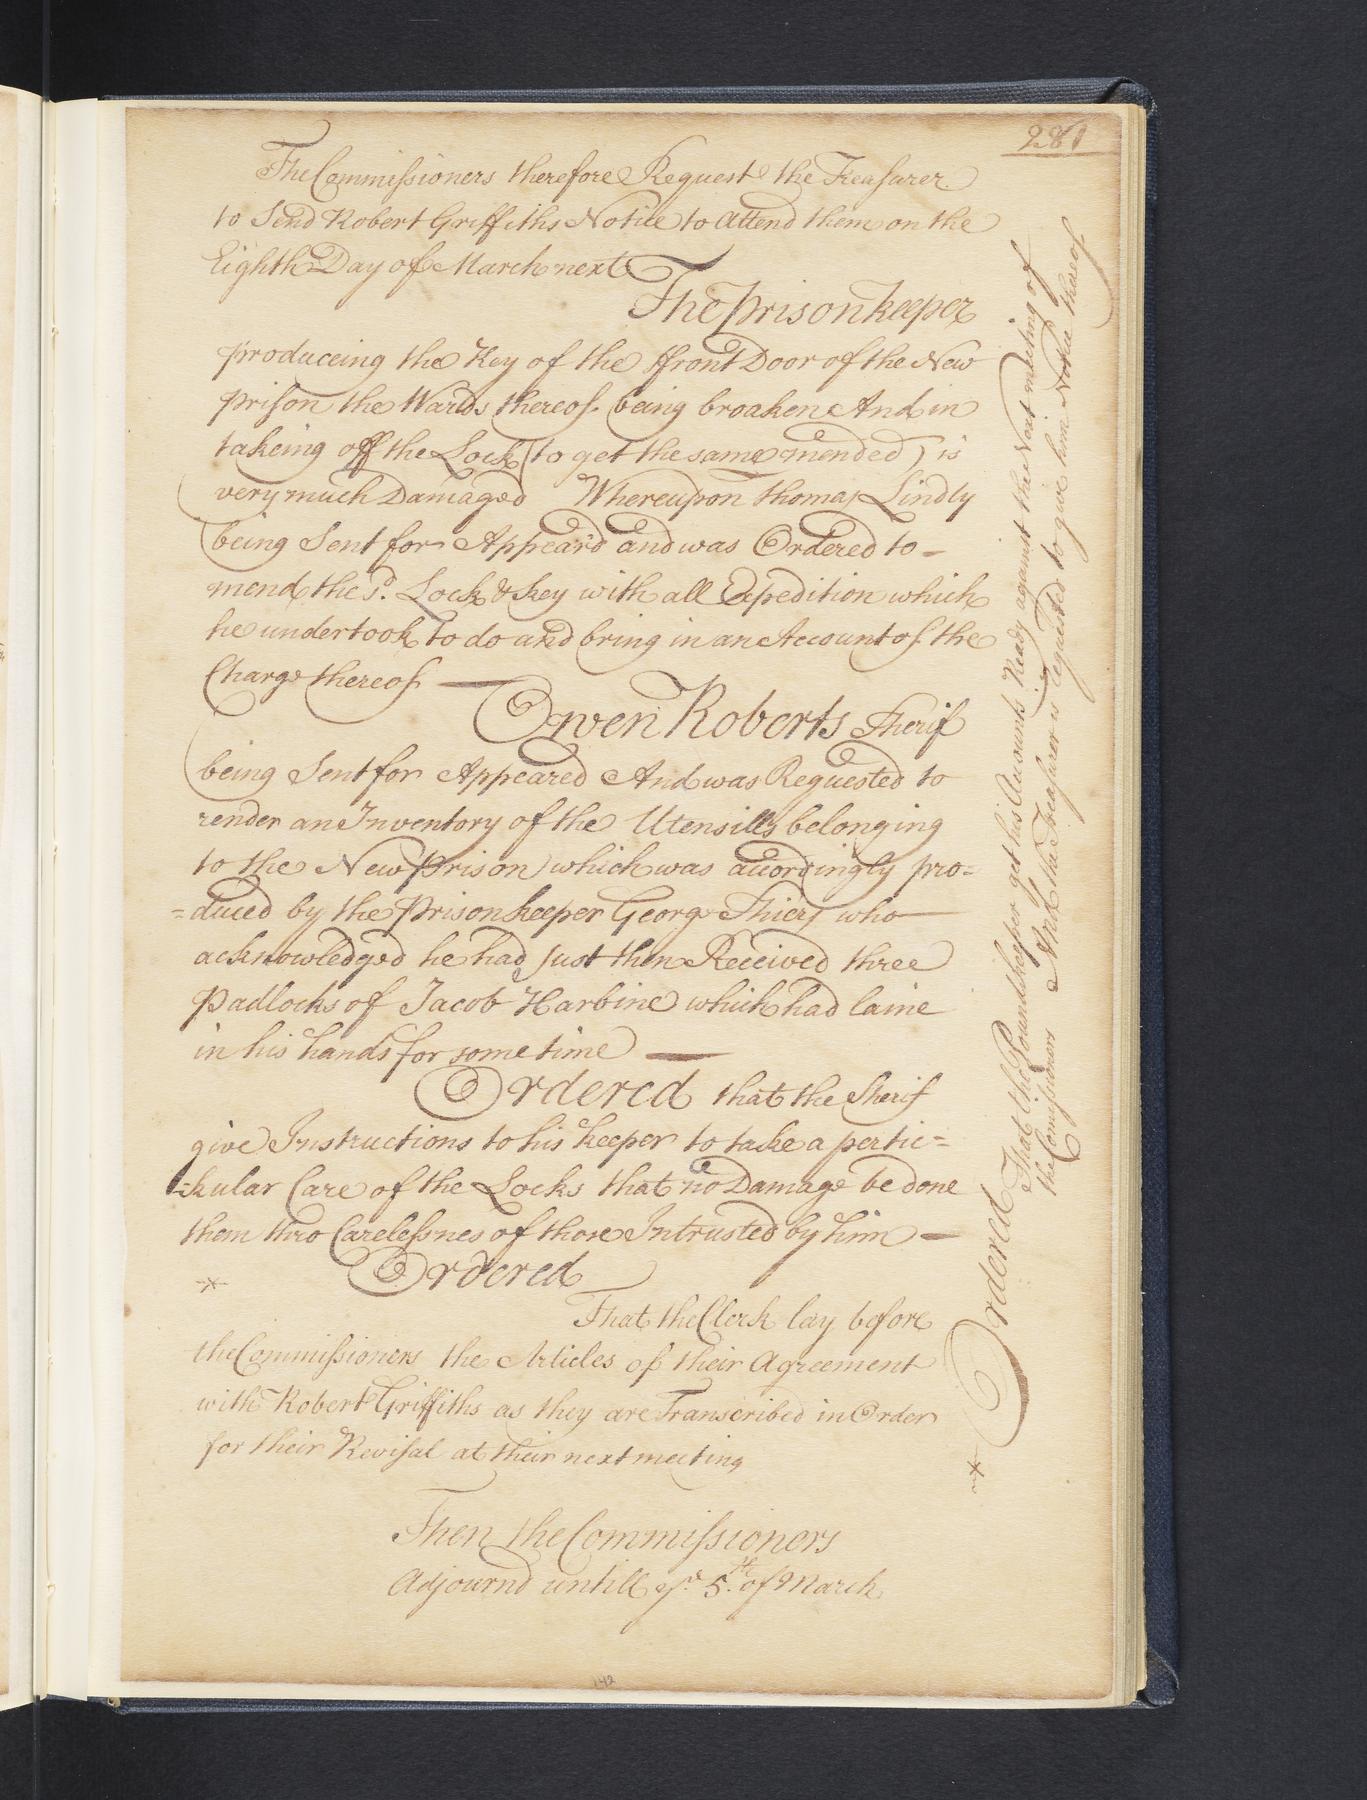 281
The Commissioners therefore Request the Treasurer
to Send Robert Griffiths Notice to Attend them on the
Eighth Day of March next
The Prisonkeeper
produceing the Key of the ffront Door of the New
prison the Wards thereof being broaken And in
takeing off the Lock (to get the same mended) is
very much Damaged Whereupon Thomas Lindly
being Sent for Appear'd and was Ordered to -
mend the s.d Lock & Key with all Expedition which
he undertook to do and bring in an Account of the
Charge thereof
Owen Roberts Sherif
being Sent for Appeared And was Requested to
render an Inventory of the Utensills belonging
to the New Prison which was accordingly pro=
=duced by the Prisonkeeper George Thier who
acknowledged he had Just then Received three
Padlocks of Jacob Harbine which had laine
in his hands for some time
Ordered that the Sherif
give Instructions to his keeper to take a pertic=
=kular Care of the Locks that no Damage be done
them thro Carelessnes of those Intrusted by him -
* Ordered
That the Clerk lay before
the Commissioners the Articles of their Agreement
with Robert Griffiths as they are Transcribed in Order
for their Revisal at their next meeting
Then the Commissioners
Adjournd untill ye 5th of March
* Ordered That the Poundkeeper get his Accounts Ready against the Next meeting of
the Commissioners And the Treasurer is requested to give him Notice thereof
142